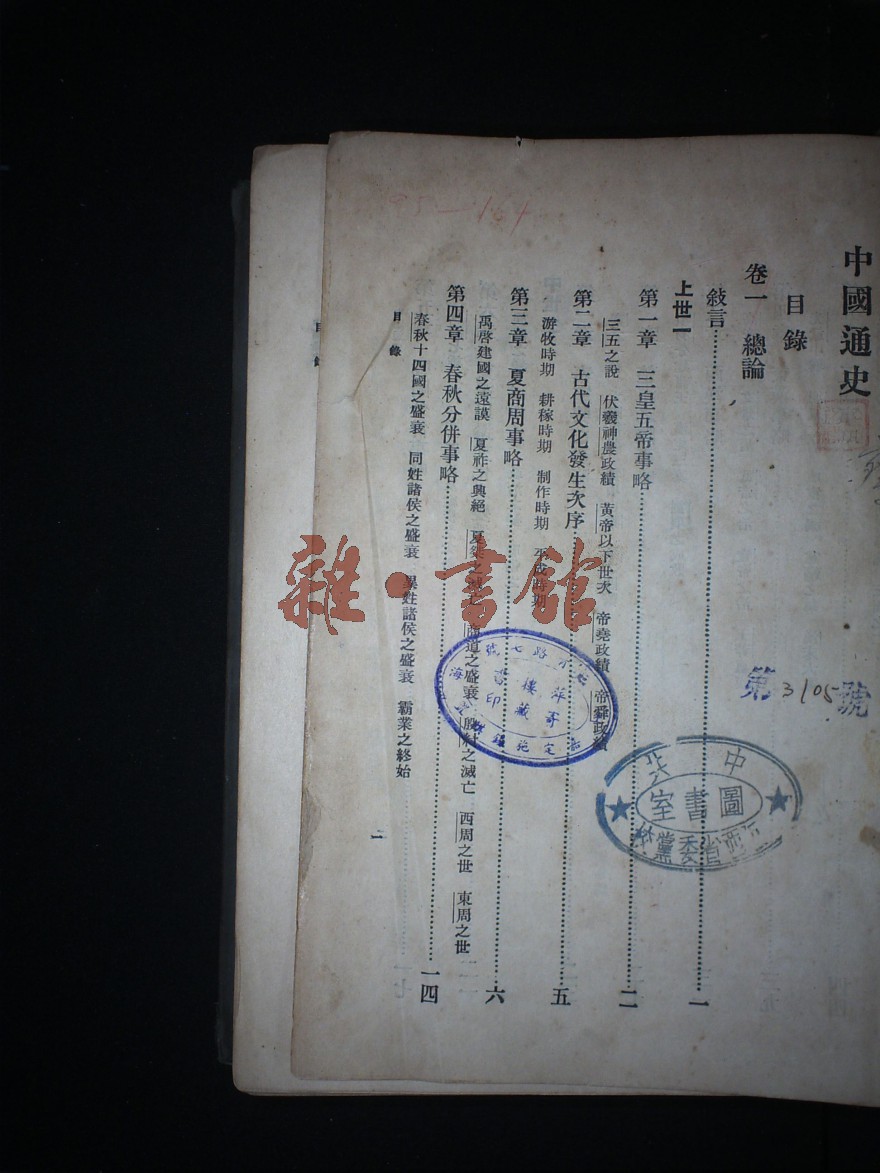 中國通史
目錄
卷一 總論
敍言……一
上世一
第一章 三皇五帝事略……二
三五之說 伏羲神農政績 黃帝以下世次 帝堯政績 帝舜政績
第二章 古代文化發生次序……五
游牧時期 耕稼時期 制作時期 平成時期
第三章 夏商周事略……六
禹啓建國之遠謨 夏祚之興絕 夏桀之滅亡 商道之盛衰 殷紂之滅亡 西周之世 東周之世
第四章 春秋分併事略……一四
春秋十四國之盛衰 同姓諸侯之盛衰 異姓諸侯之盛衰 霸業之終始
目錄
一
第3105號
中共
圖書室
省委黨校
萍哥
樓藏
印
雜·書館
目錄